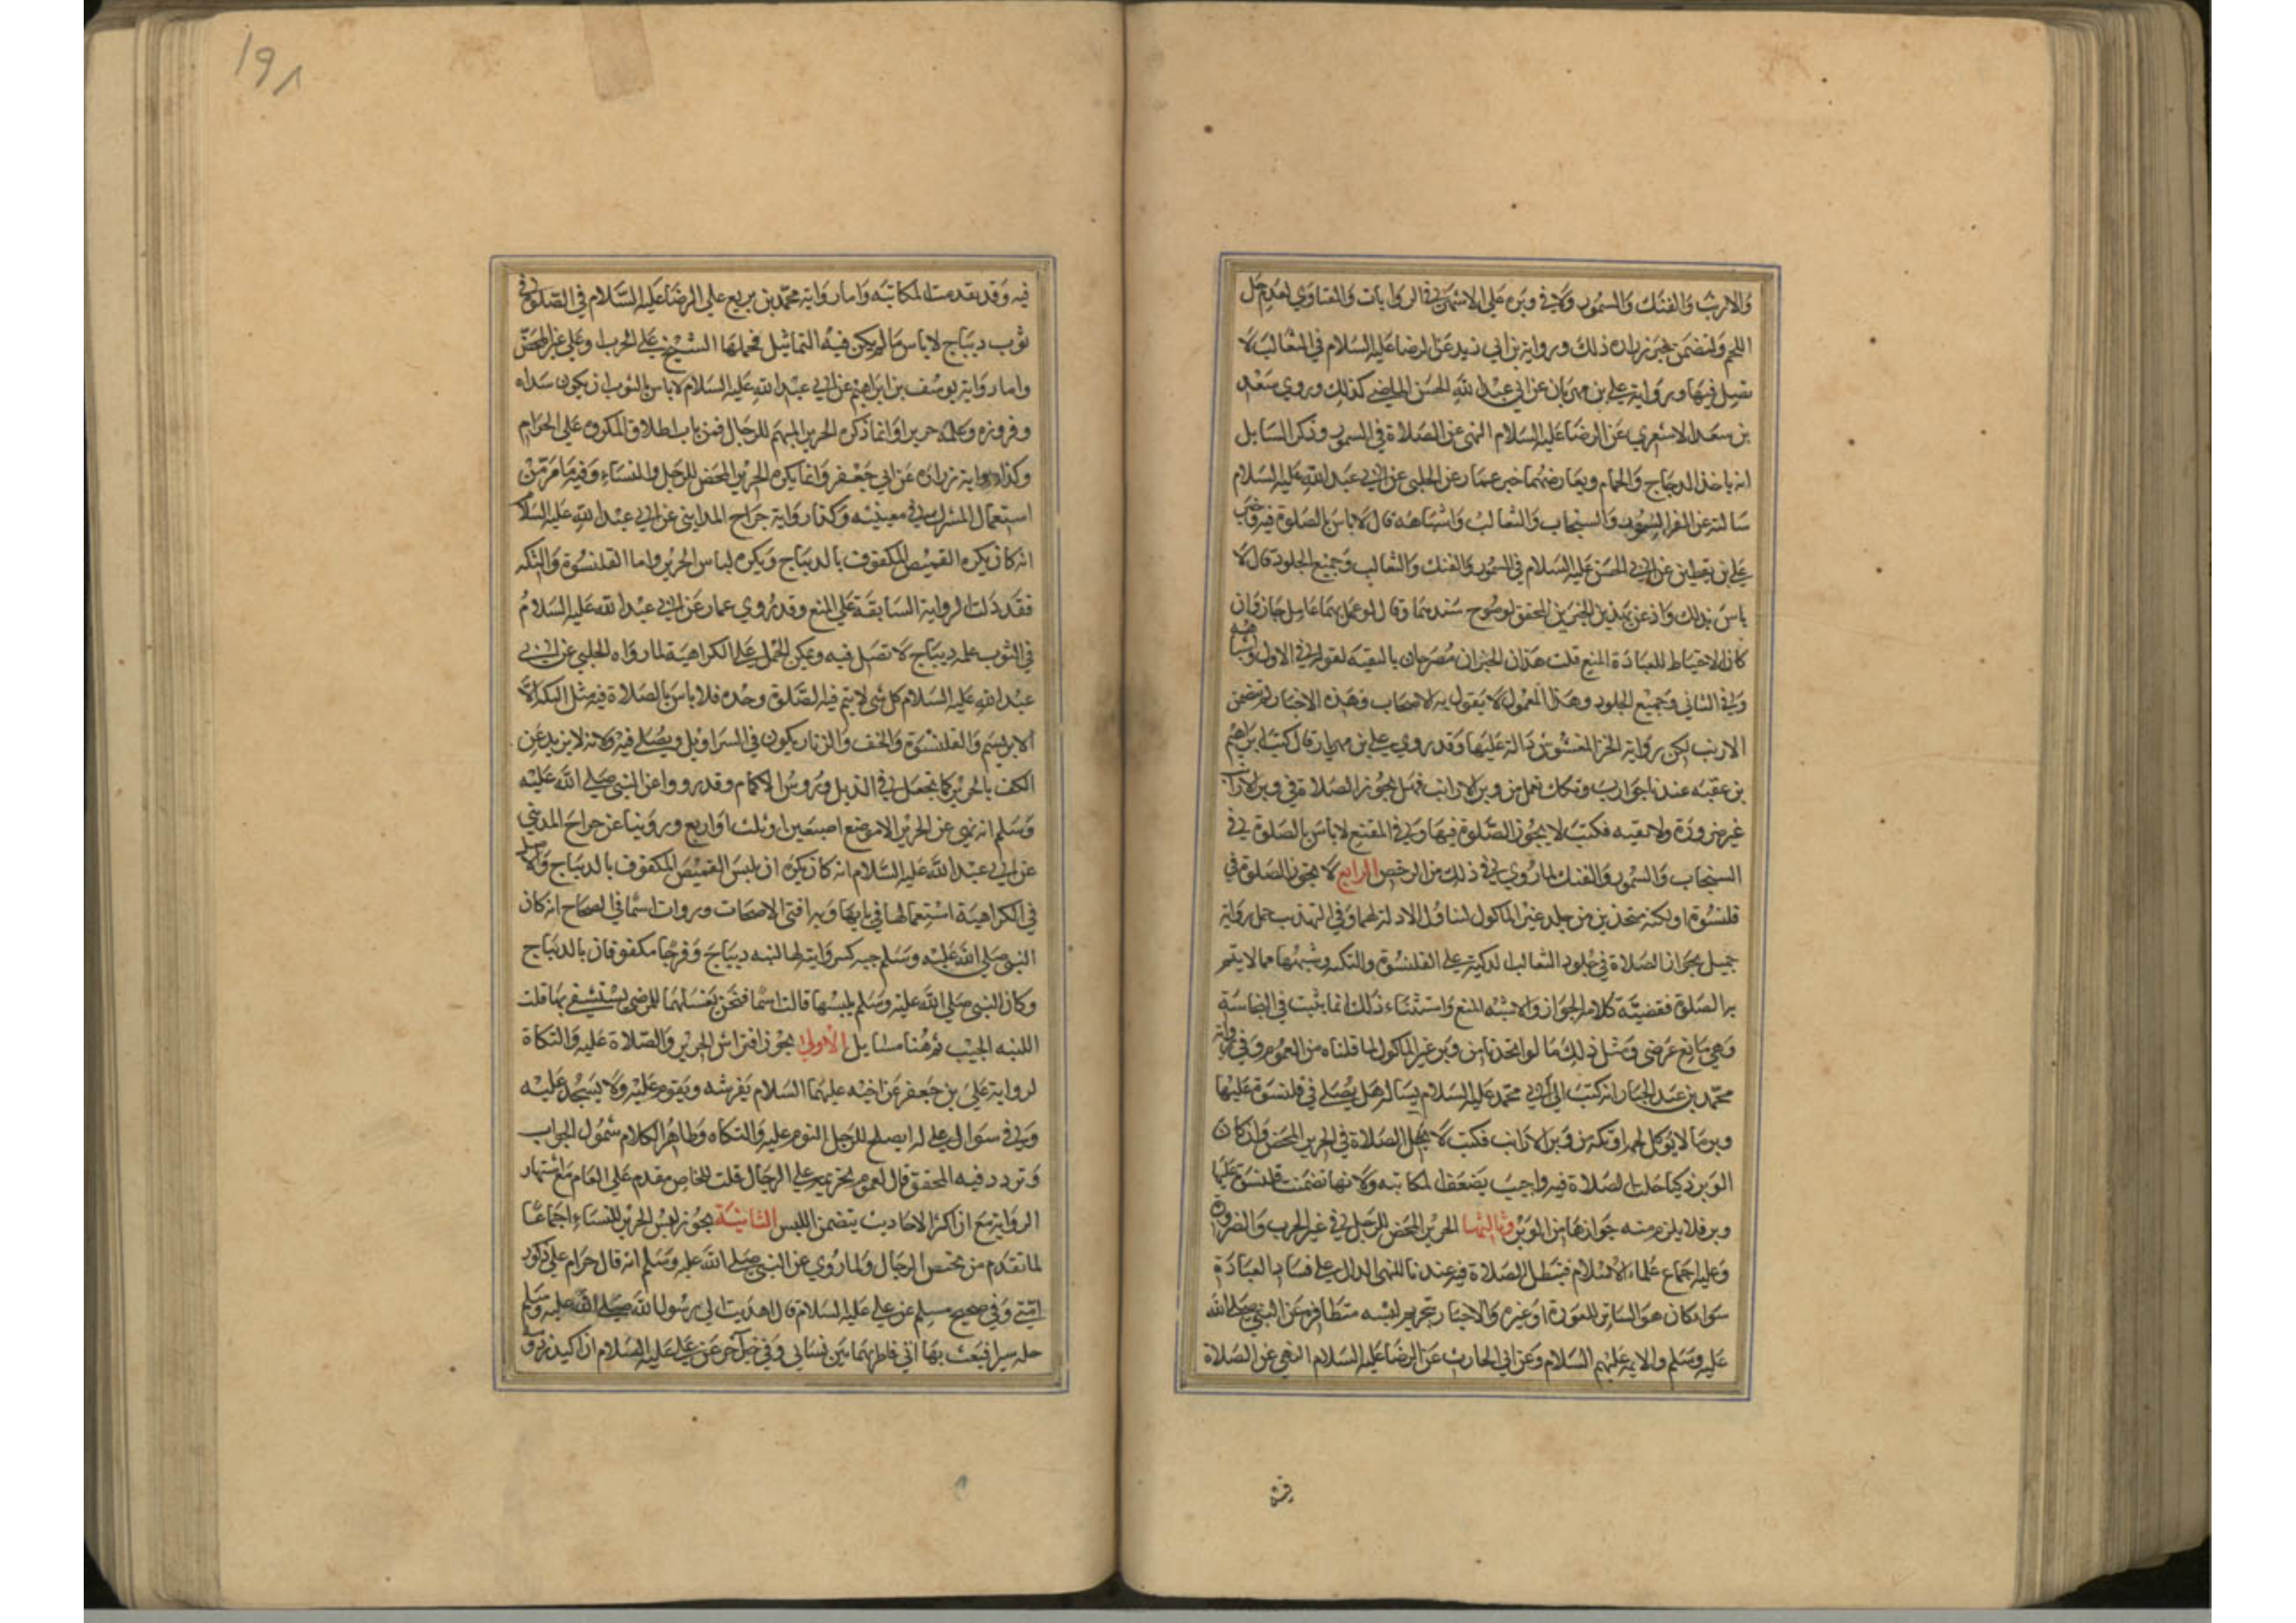 والارنب والفنك والسمور ولا في وبره على الاشهر في الروايات والفتاوي لعدم حل
اللحم ولتضمن خبر زراره ذلك ورواية بن ابي زيد عن الرضا عليه السلام في الثعالب لا
تصل فيها ورواية علي بن مهزيان عن ابي عبد الله الحسن الماضي كذلك وروي سعد
بن سعد الاشعري عن الرضا عليه السلام النهي عن الصلاة في السمور وذكر السايل
انه ياخذ الدجاج والحمام ويعارضهما خبر عمار عن الحلبي عن ابي عبد الله عليه السلام
سالته عن الفرا السمور والسنجاب والثعالب واشباهه قال لا باس بالصلوة فيه وخبر
علي بن يقطين عن ابي الحسن عليه السلام في السمور والفنك والثعالب وجميع الجلود قال لا
باس بذلك واذعن بهذين الخبرين المحقق لوضوح سندهما وقال لو عمل بهما عامل جاز وان
كان الاحتياط للعبادة المنع قلت هذان الخبران مصرحان بالتقيه لقوله في الاول واشباهه
وفي الثاني وجميع الجلود وهذا العموم لا يقول به الاصحاب وهذه الاخبار لم تتضمن
الارنب لكن رواية الخز المغشوش دالة عليها وقد روي علي بن مهزيار قال كتب ابراهيم
بن عقبه عندنا جوارب وتكك تعمل من وبر الارانب فهل يجوز الصلاة في وبر الارانب
غير ضرورة ولا تقيه فكتب لا يجوز الصلوة فيها وفي المقنع لا باس بالصلوة في
السنجاب والسمور والفنك لما روي في ذلك من الرخص الرابع لا يجوز الصلوة في
قلنسوة او تكة متخذين من جلد غير الماكول لتناول الادلة لهما وفي التهذيب حمل رواية
جميل بجواز الصلاة في جلود الثعالب الذكية على القلنسوة والتكه وشبهها مما لا يتم
به الصلوة فقضية كلامه الجواز والاشبه المنع واستثناء ذلك انما يثبت في النجاسة
وهي مانع عرضي ومثل ذلك ما لو اتخذتا من وبر غير الماكول لما قلناه من العموم وفي رواية
محمد بن عبد الجبار انه كتب الى ابي محمد عليه السلام يساله هل يصلي في قلنسوة عليها
وبر ما لا يوكل لحمه او تكة من وبر الارانب فكتب لا تحل الصلاة في الحرير المحض وان كان
الوبر ذكيا حلت الصلاة فيه واجيب بضعف المكاتبه ولانها تضمنت قلنسوة عليها
وبر فلا يلزم منه جوازها من الوبر وثالثها الحرير المحض للرجل في غير الحرب والضرورة
وعليه اجماع علماء الاسلام فتبطل الصلاة فيه عندنا للنهي الدال على فساد العبادة
سواء كان هو الساتر للعورة او غيره والاخبار بتحريم لبسه متظافرة عن النبي صلى الله
عليه وسلم والايمه عليهم السلام وعن ابي الحارث عن الرضا عليه السلام النهي عن الصلاة
فيه
١٩٨
فيه وقد تقدمت المكاتبه واما رواية محمد بن بزيع علي الرضا عليه السلام في الصلوة في
ثوب ديباج لا باس ما لم يكن فيه التماثيل فحملها الشيخ علي الحرب او علي غير المحض
واما رواية يوسف بن ابراهيم عن ابي عبد الله عليه السلام لا باس بالثوب ان يكون سداه
وزره وعلمه حريرا وانما ذكره الحرير المبهم للرجال فمن باب اطلاق المكروه على الحرام
وكذا رواية زراره عن ابي جعفر وانما يكره الحرير المحض للرجل والنساء وفيه ما مر من
استعمال المشترك في معنييه وكذا رواية جراح المدايني عن ابي عبد الله عليه السلام
انه كان يكره القميص المكفوف بالديباج ويكره لباس الحرير واما القلنسوة والتكه
فقد دلت الرواية السابقة على المنع وقد روي عمار عن ابي عبد الله عليه السلام
في الثوب علمه ديباج لا تصل فيه ويمكن الحمل على الكراهية لما رواه الحلبي عن ابي
عبد الله عليه السلام كل شي لا يتم فيه الصلوة وحده فلا باس بالصلاة فيه مثل التكة
الابريسم والقلنسوة والخف والزنار يكون في السراويل ويصلى فيه ولانه لا يزيد عن
الكف بالحرير كما يجعل في الذيل ورؤس الاكمام وقد رووا عن النبي صلى الله عليه
وسلم انه نهى عن الحرير الا موضع اصبعين او ثلث او اربع وروينا عن جراح المديني
عن ابي عبد الله عليه السلام انه كان يكره ان يلبس القميص المكفوف بالديباج والاصل
في الكراهية استعمالها في بابها وبه افتى الاصحاب وروت اسما في الصحاح انه كان
النبي صلى الله عليه وسلم جبه كسروانيه لها لبنه ديباج وفرجا مكفوفان بالديباج
وكان النبي صلى الله عليه وسلم يلبسها قالت اسما فنحن نغسلها للمرضى يستشفي بها قلت
اللبنه الجيب وهنا مسايل الاولى يجوز افتراش الحرير والصلاة عليه والتكاة
لرواية علي بن جعفر عن اخيه عليهما السلام يفرشه ويقوم عليه ولا يسجد عليه
وفي سوال علي له ايصلح للرجل النوم عليه والتكاه وظاهر الكلام شمول الجواب
وتردد فيه المحقق قال لعموم تحريمه على الرجال قلت الخاص مقدم على العام مع اشتهار
الرواية مع ان اكثر الاحاديث يتضمن اللبس الثانية يجوز لبس الحرير للنساء اجماعا
لما تقدم من تختص الرجال ولما روي عن النبي صلى الله عليه وسلم انه قال حرام على ذكور
امتي وفي صحيح مسلم عن علي عليه السلام قال اهديت لي رسول الله صلى الله عليه وسلم
حله سيرا فبعث بها الي فاطرتها بين نسائي وفي خبر آخر عن علي عليه السلام ان اكيدر